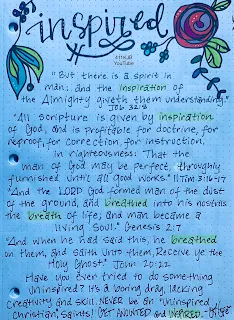 inspired
YouTube
"But there is a spirit in
man: and the inspiration of
the Almighty giveth them understanding."
Job 32:8
"All scripture is given by inspiration
of God, and is profitable for doctrine, for
reproof, for correction, for instruction,
in righteousness: That the
man of God may be perfect, throughly
furnished until all good works." II Tim 3:16-17
"And the LORD God formed man of the dust
of the ground, and breathed into his nostrils
the breath of life; and man became a
living soul." Genesis 2:7
"And when he had said this, he breathed
on them, and saith unto them, Receive ye the
Holy Ghost." John 20:22
Have you ever tried to do something
uninspired? It's a boring drag, lacking
creativity and skill. NEVER be an "uninspired
Christian," saints! GET ANOINTED and INSPIRED.